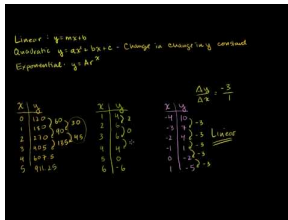 Linear: y=mx+b
Quadratic y=ax²+bx+c - Change in change in y constant
Exponential - y=Ar^x
Δy/Δx = -3/1
x | y
0 | 120
1 | 180
2 | 270
3 | 405
4 | 607.5
5 | 911.25
60
90
135
30
45
x | y
1 | 4
2
3
4 | 4
5 | 0
6 | -6
2
0
x | y
-4 | 10
-3 | 7
-2 | 4
-1 | 1
0 | -2
1 | -5
-3
-3
-3
-3
-3
Linear